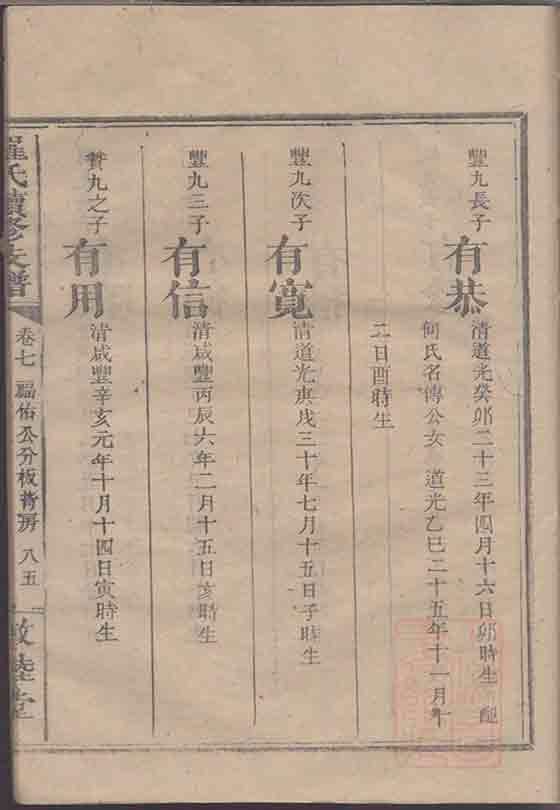 豐九長子
有恭
清道光癸卯二十三年四月十六日卯時生 配
何氏名傳公女 道光乙巳二十五年十一月十
二日酉時生
豐九次子
有寬
清道光庚戌三十年七月十五日子時生
豐九三子
有信
清咸豐丙辰六年二月十五日亥時生
贊九之子
有用
清咸豐辛亥元年十月十四日寅時生
羅氏續修支譜
卷七 福佑公分板背房 八五
敦睦堂